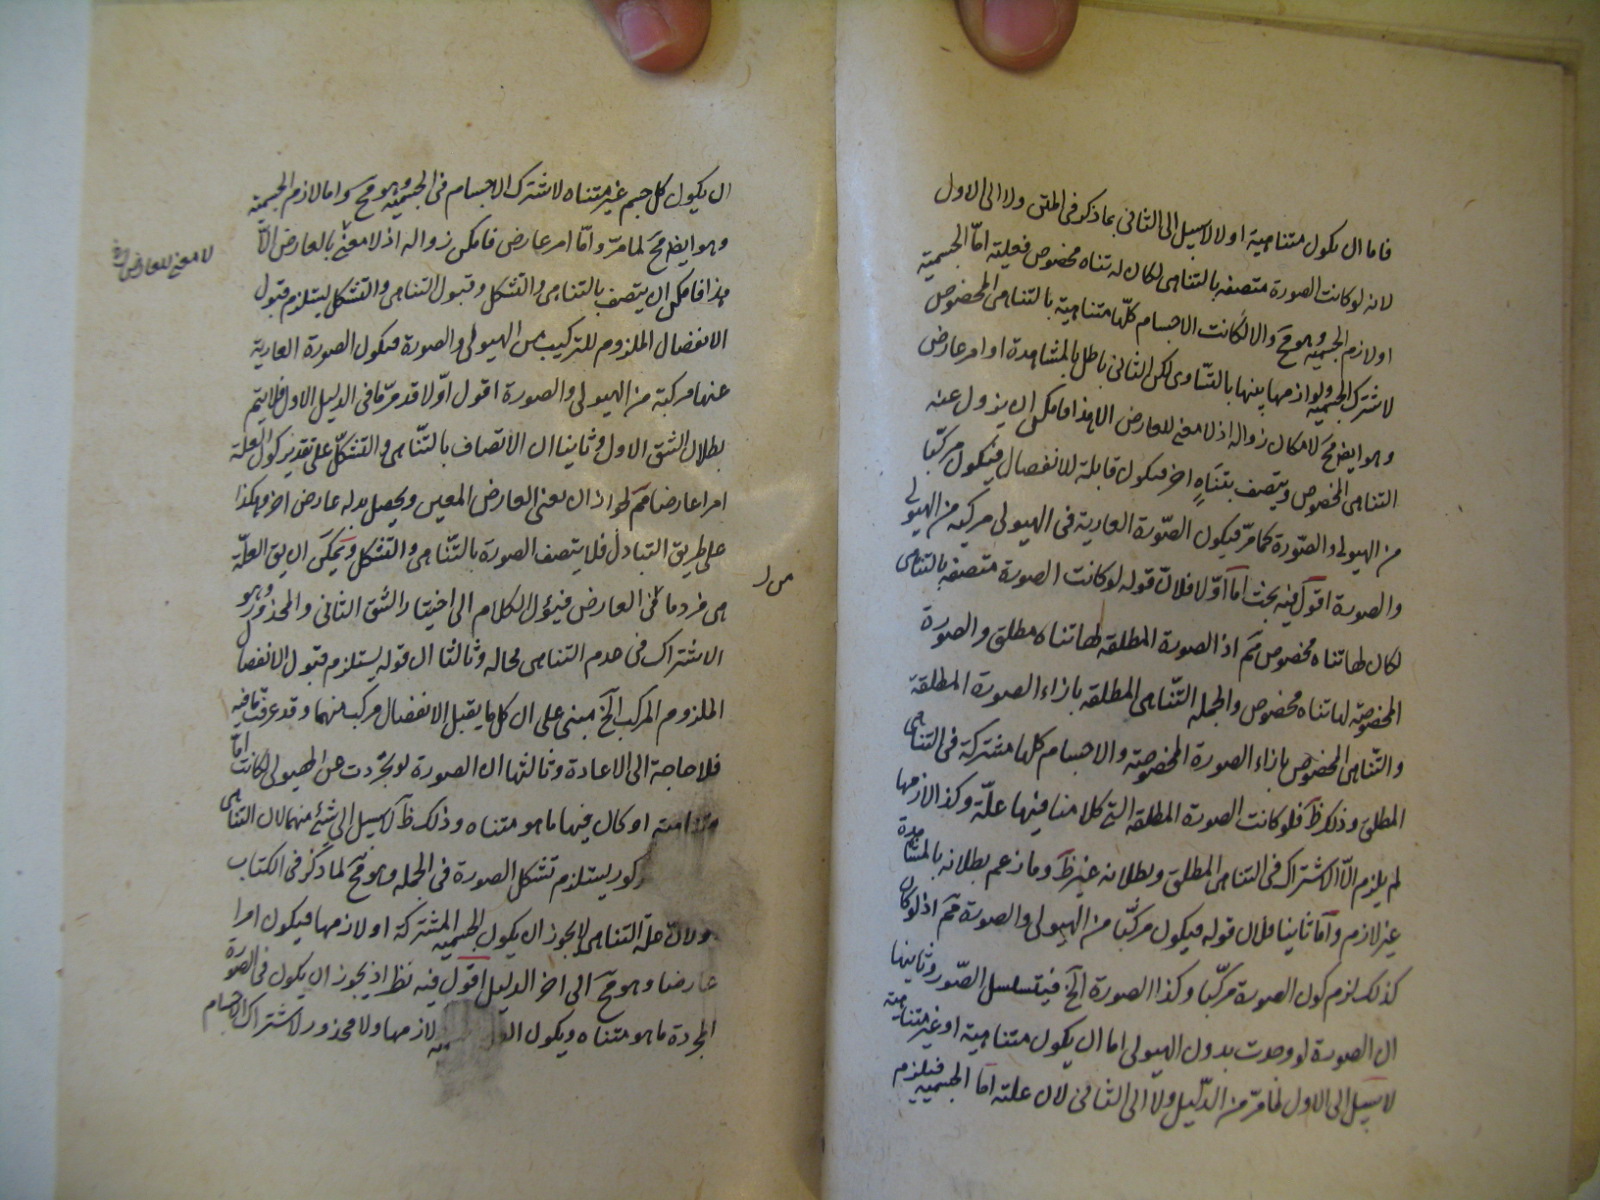 فاما ان يكون متناهية او لا لا سبيل الى الثانى بما ذكر فى المتن ولا الى الاول
لانه لو كانت الصورة متصفة بالتناهى لكان له تناه مخصوص فعليته امّا الجسمية
او لازم الجسمية وهو مح والا لكانت الاجسام كلّها متناهية بالتناهى المخصوص
لاشتراك الجسمية ولوازمها بينها بالتساوى لكن الثانى باطل بالمشاهدة او امر عارض
وهو ايض مح لامكان زواله اذ لا معنى للعارض الا هذا فامكن ان يزول عنه
التناهى المخصوص ويتصف بتناهٍ اخر فيكون قابلة للانفصال فيكون مركّبا
من الهيولى والصّورة كما مرّ فيكون الصّورة العارية فى الهيولى مركبة من الهيولى
والصورة اقول فيه بحث امّا اوّلا فلانّ قوله لو كانت الصورة متصفة بالتناهى
لكان لها تناه مخصوص مم اذ الصورة المطلقة لها تناه مطلق والصورة
المخصوصة لها تناه مخصوص والجمله التّناهى المطلقة بازاء الصورة المطلقة
والتّناهى المخصوص بازاء الصورة المخصوصة والاجسام كلها مشتركة فى التناهى
المطلق وذلك ظ فلو كانت الصورة المطلقة التى كلامنا فيها علّة وكذا لازمها
لم يلزم الّا الاشتراك فى التناهى المطلق وبطلانه غير ظ وما زعم بطلانه بالمشاهدة
غير لازم وامّا ثانيا فلان قوله فيكون مركّبا من الهيولى والصورة مم اذ لو كان
كذلك لزم كون الصورة مركّبا وكذا الصورة الخ فيتسلسل الصّور وثانيها
ان الصورة لو وجدت بدون الهيولى اما ان يكون متناهية او غير متناهية
لا سبيل الى الاول لما مرّ من الدّليل ولا الى الثانى لان علته امّا الجسمية فيلزم
ان يكون كل جسم غير متناه لاشتراك الاجسام فى الجسمية وهو مح واما لازم الجسمية
وهو ايض مح لما مرّ وامّا امر عارض فامكن زواله اذ لا معنى بالعارض الّا
هذا فامكن ان يتصف بالتناهى والتشكل وقبول التناهى والتشكل يستلزم قبول
الانفصال الملزوم للتركيب من الهيولى والصورة فيكون الصورة العارية
عنها مركبة من الهيولى والصورة اقول اوّلا قد مرّ ما فى الدليل الاول فلا يتم
بطلان الشق الاول وثانيا ان الاتصاف بالتّناهى والتشكّل على تقدير كون العلة
امرا عارضا مم لجواز ان يعنى العارض المعين ويحصل بدله عارض اخر وهكذا
على طريق التبادل فلا يتصف الصورة بالتّناهى والتشكل ويمكن ان يق العلّة
هى فرد ما فى العارض فيؤل الكلام الى اختيار الشق الثانى والمحذور وهو
الاشتراك فى عدم التناهى بحاله وثالثا ان قوله يستلزم قبول الانفصال
الملزوم المركب الخ مبنى على ان كل ما يقبل الانفصال مركب منهما وقد عرفت ما فيه
فلا حاجة الى الاعادة وثالثها ان الصورة لو تجردت عن الهيولى لكانت امّا
متناهية او كان فيها ما هو متناه وذلك ظ لا سبيل الى شئ منهما لان التناهى
كور يستلزم تشكل الصورة فى الجمله وهو مح لما ذكر فى الكتاب
ولانّ علّة التناهى لا يجوز ان يكون الجسمية المشتركة او لازمها فيكون امرا
عارضا وهو مح الى اخر الدليل اقول فيه نظر اذ يجوز ان يكون فى الصورة
المجردة ما هو متناه ويكون لازمها ولا محذور لاشتراك الاجسام
لا معنى للعارض